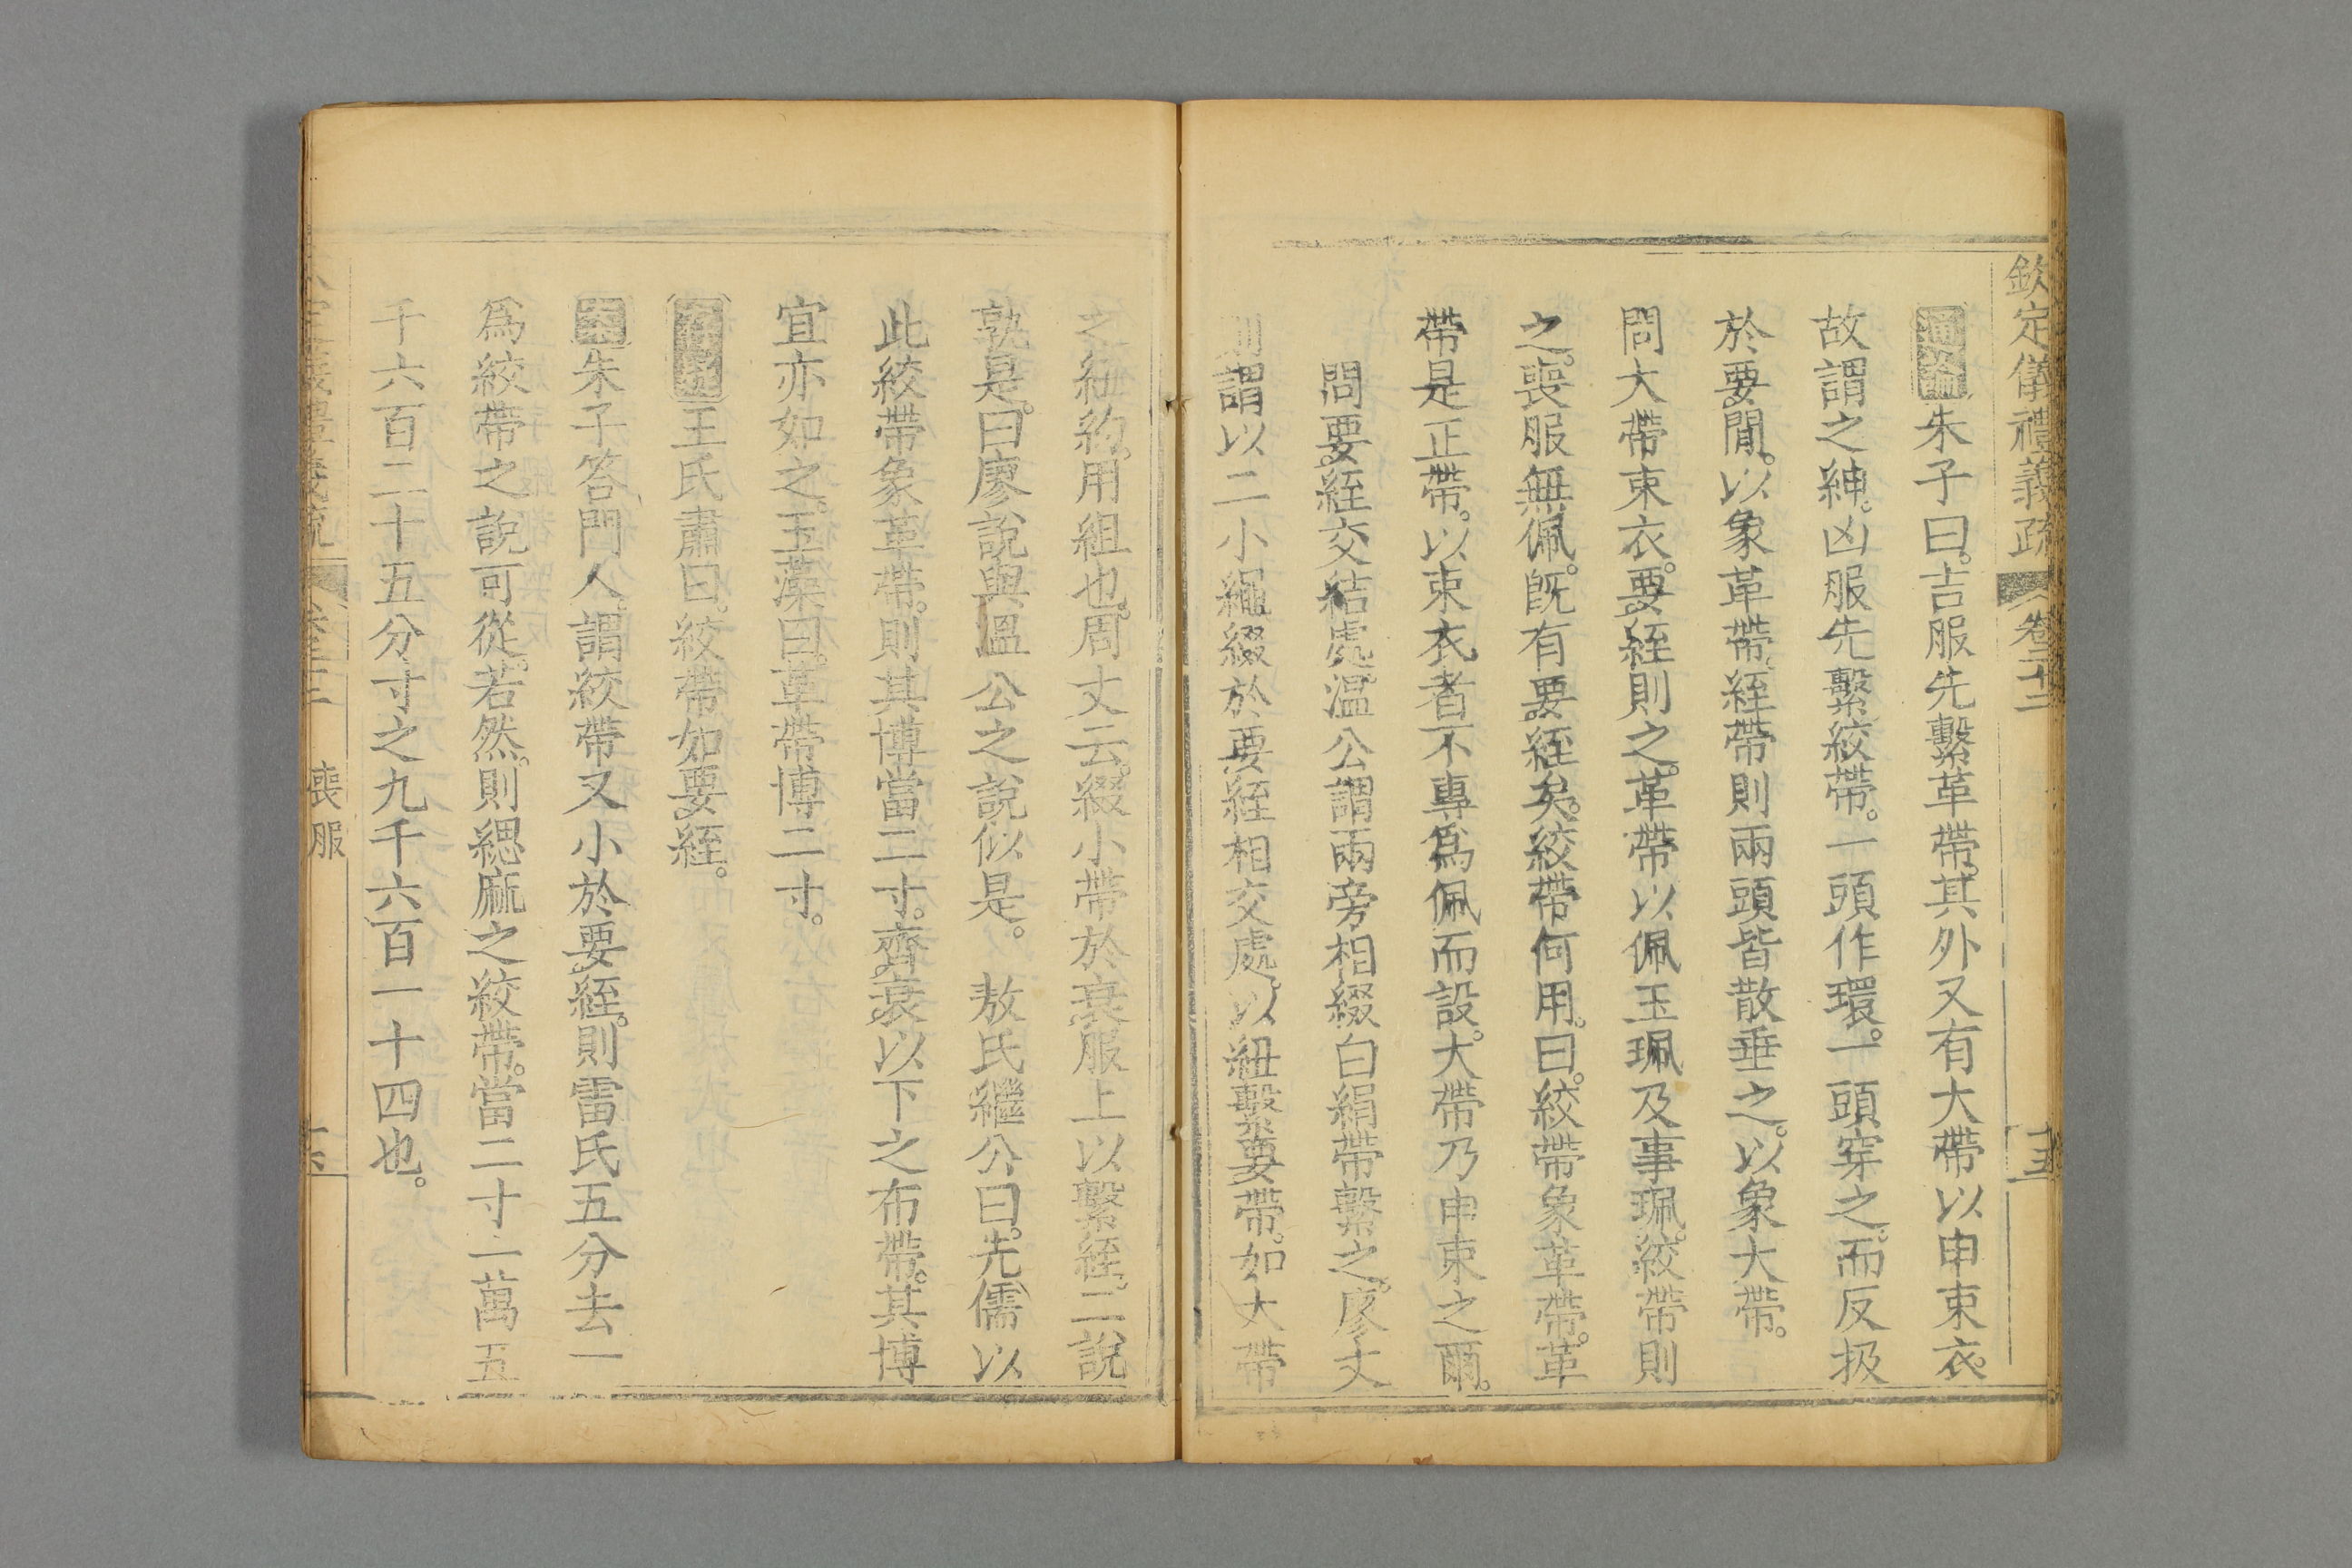 欽定儀禮義疏 卷二十二 十五
通論朱子曰。吉服先繫革帶。其外又有大帶以申束衣。
故謂之紳。凶服先繫絞帶。一頭作環。一頭穿之。而反扱
於要閒。以象革帶。絰帶則兩頭皆散垂之。以象大帶。
問大帶束衣。要絰則之。革帶以佩玉珮及事珮。絞帶則
之。喪服無佩。旣有要絰矣。絞帶何用。曰。絞帶象革帶。革
帶是正帶。以束衣者。不專爲佩而設。大帶乃申束之爾。
問要絰交結處。溫公謂兩旁相綴白絹帶繫之。廖丈
則謂以二小繩綴於要絰相交處。以紐繫要帶。如大帶
之紐約。用組也。周丈云。綴小帶於衰服上以繫絰。二說
孰是。曰廖說與溫公之說似是。 敖氏繼公曰。先儒以
此絞帶象革帶。則其博當二寸。齊衰以下之布帶。其博
宜亦如之。玉藻曰。革帶博二寸。
王氏肅曰。絞帶如要絰。
朱子答門人。謂絞帶又小於要絰。則雷氏五分去一
爲絞帶之說可從。若然。則緦麻之絞帶。當二寸一萬五
千六百二十五分寸之九千六百一十四也。
喪服